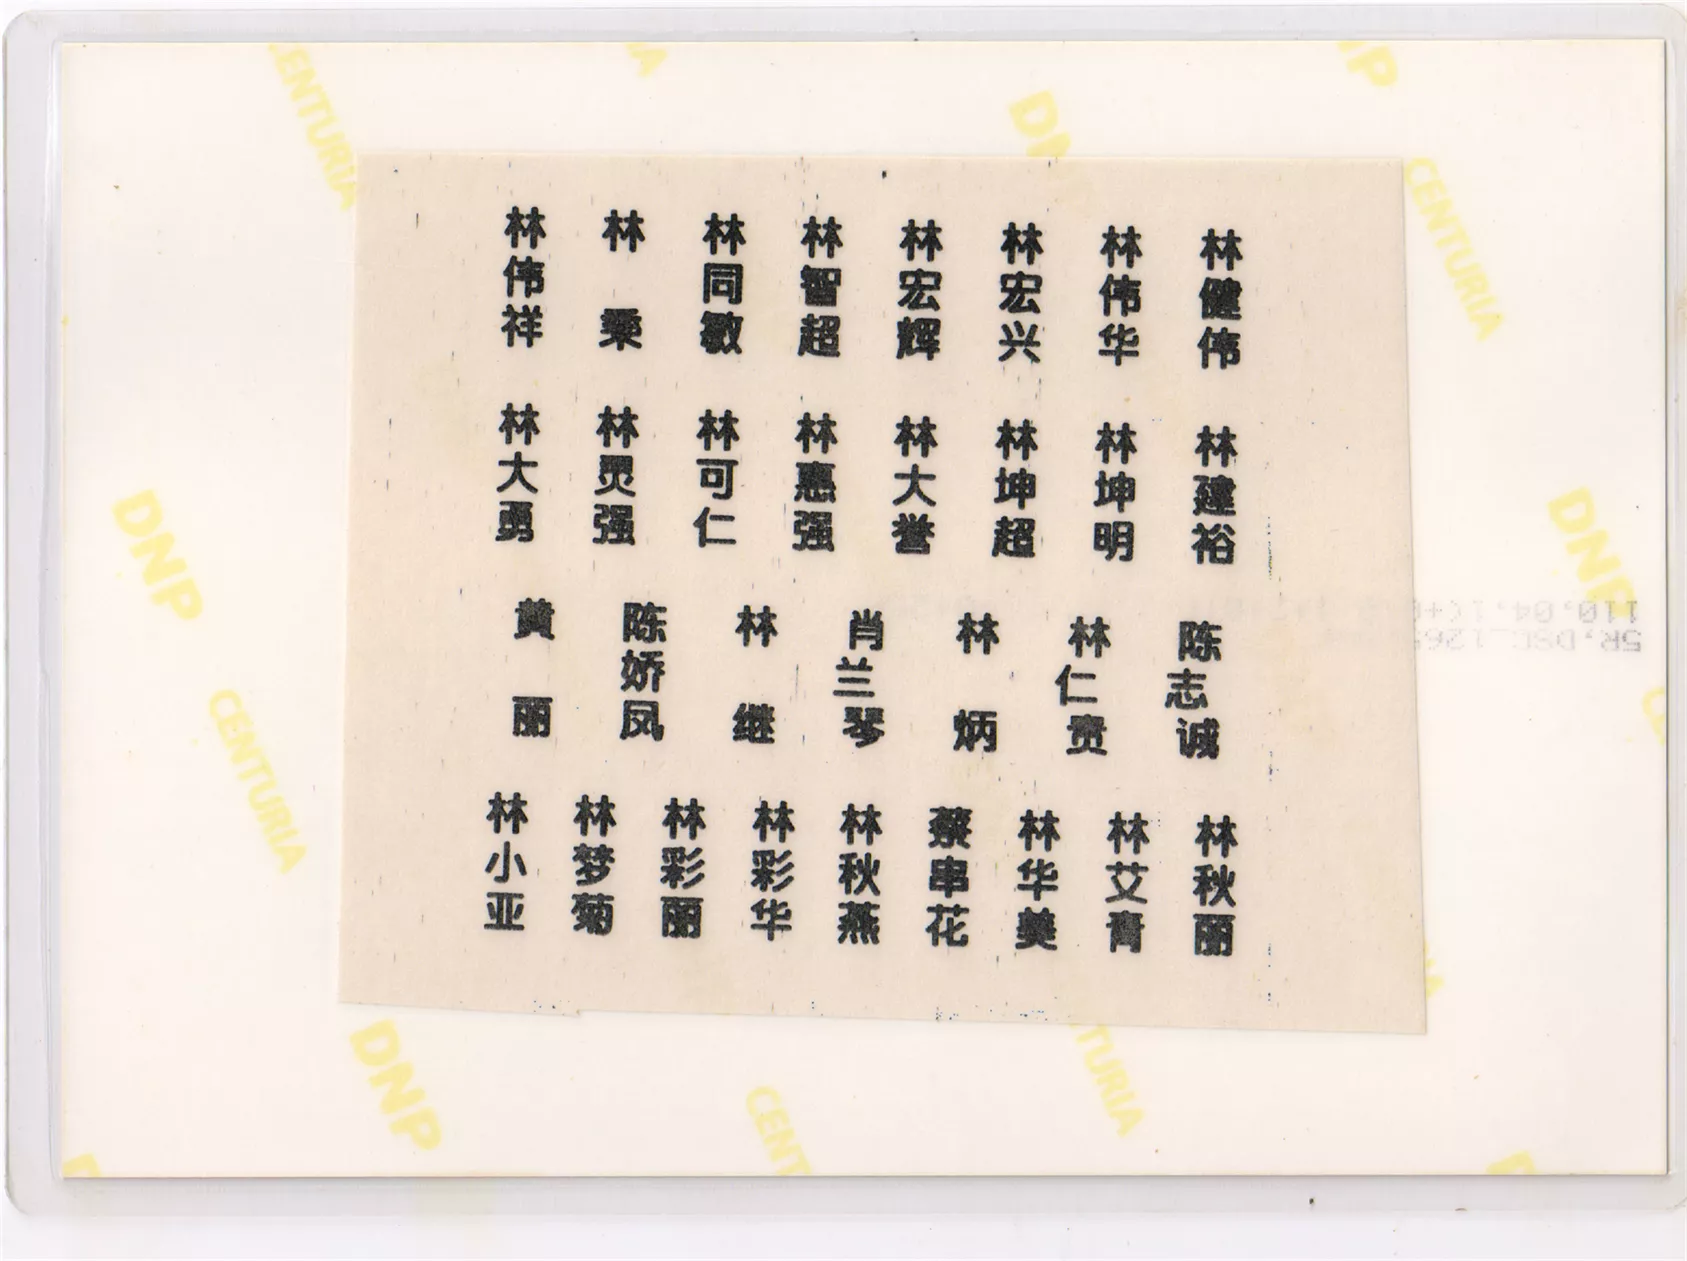 林伟祥 林乘 林同敏 林智超 林宏辉 林宏兴 林伟华 林健伟
林大勇 林灵强 林可仁 林惠强 林大誉 林坤超 林坤明 林建裕
黄丽 陈娇凤 林继 肖兰琴 林炳 林仁贵 陈志诚
林小亚 林梦菊 林彩丽 林彩华 林秋燕 蔡串花 林华美 林艾青 林秋丽
DNP
CENTURIA
DNP
CENTURIA
DNP
CENTURIA
DNP
CENTURIA
DNP
TURIA
CENT